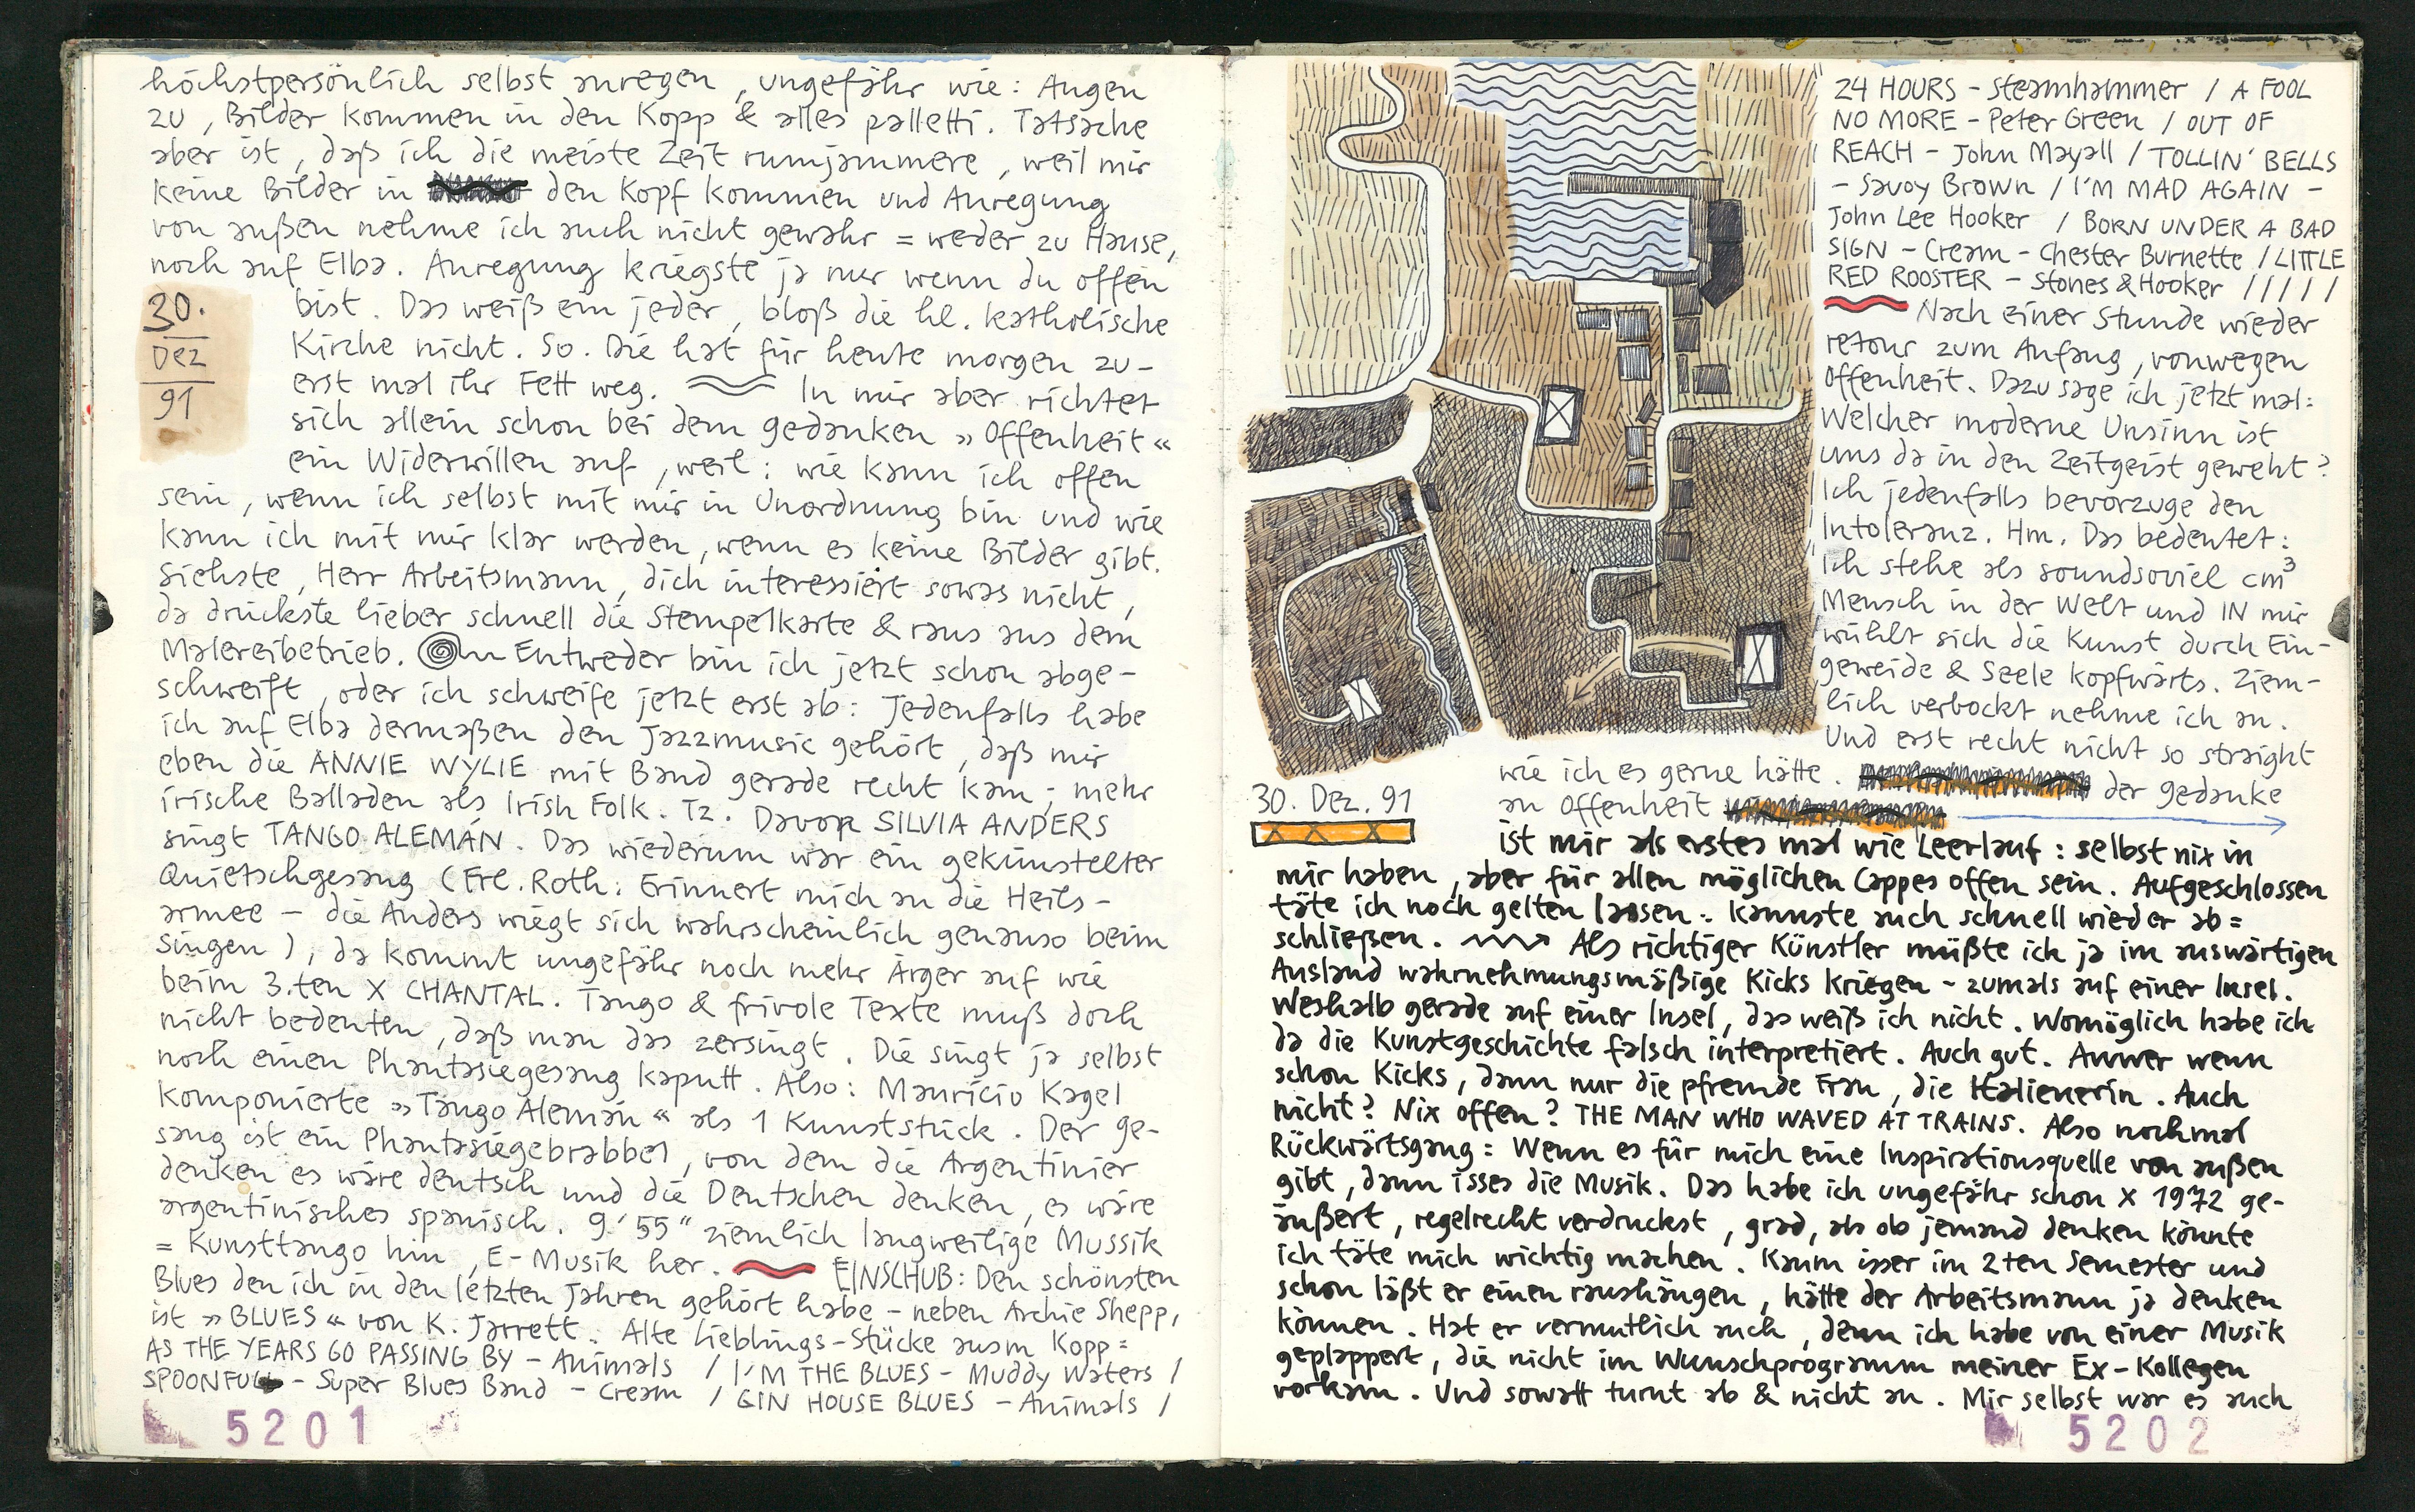 höchstpersönlich selbst anregen, ungefähr wie: Augen
zu, Bilder kommen in den Kopp & alles palletti. Tatsache
aber ist, daß ich die meiste Zeit rumjammere, weil mir
keine Bilder in den Kopf kommen und Anregung
von außen nehme ich auch nicht gewahr = weder zu Hause,
noch auf Elba. Anregung kriegste ja nur wenn du offen
bist. Das weiß ein jeder, bloß die hl. katholische
Kirche nicht. So. Die hat für heute morgen zu-
erst mal ihr Fett weg. In mir aber richtet
sich allein schon bei dem Gedanken »Offenheit«
ein Widerwillen auf, weil: wie kann ich offen
sein, wenn ich selbst mit mir in Unordnung bin und wie
kann ich mit mir klar werden, wenn es keine Bilder gibt.
Siehste, Herr Arbeitsmann, dich interessiert sowas nicht,
da drückste lieber schnell die Stempelkarte & raus aus dem
Malereibetrieb. Entweder bin ich jetzt schon abge-
schweift, oder ich schweife jetzt erst ab: Jedenfalls habe
ich auf Elba dermaßen den Jazzmusic gehört, daß mir
eben die ANNIE WYLIE mit Band gerade recht kam; mehr
irische Balladen als Irish Folk. Tz. Davor SILVIA ANDERS
singt TANGO ALEMÁN. Das wiederum war ein gekünstelter
Quietschgesang (Frl. Roth: Erinnert mich an die Heils-
armee – die Anders wiegt sich wahrscheinlich genauso beim
Singen), da kommt ungefähr noch mehr Ärger auf wie
beim 3.ten X CHANTAL. Tango & frivole Texte muß doch
nicht bedeuten, daß man das zersingt. Die singt ja selbst
noch einen Phantasiegesang kaputt. Also: Mauricio Kagel
komponierte »Tango Alemán« als 1 Kunststück. Der Ge-
sang ist ein Phantasiegebrabbel, von dem die Argentinier
denken es wäre deutsch und die Deutschen denken, es wäre
argentinisches spanisch. 9'55" ziemlich langweilige Mussik
= Kunsttango hin, E-Musik her. EINSCHUB: Den schönsten
Blues den ich in den letzten Jahren gehört habe – neben Archie Shepp,
ist »BLUES« von K. Jarrett. Alte Lieblings-Stücke ausm Kopp:
AS THE YEARS GO PASSING BY – Animals / I'M THE BLUES – Muddy Waters /
SPOONFUL – Super Blues Band – Cream / GIN HOUSE BLUES – Animals /
30.
Dez
91
5201
24 HOURS – Steamhammer / A FOOL
NO MORE – Peter Green / OUT OF
REACH – John Mayall / TOLLIN' BELLS
– Savoy Brown / I'M MAD AGAIN –
John Lee Hooker / BORN UNDER A BAD
SIGN – Cream – Chester Burnette / LITTLE
RED ROOSTER – Stones & Hooker /////
Nach einer Stunde wieder
retour zum Anfang, vonwegen
Offenheit. Dazu sage ich jetzt mal:
Welcher moderne Unsinn ist
uns da in den Zeitgeist geweht?
Ich jedenfalls bevorzuge den
Intoleranz. Hm. Das bedeutet:
Ich stehe als soundsoviel cm³
Mensch in der Welt und IN mir
wühlt sich die Kunst durch Ein-
geweide & Seele kopfwärts. Ziem-
lich verbockt nehme ich an.
Und erst recht nicht so straight
wie ich es gerne hätte. der Gedanke
an Offenheit
30. Dez. 91
ist mir als erstes mal wie Leerlauf: selbst nix in
mir haben, aber für allen möglichen Cappes offen sein. Aufgeschlossen
täte ich noch gelten lassen: kannste auch schnell wieder ab=
schließen. Als richtiger Künstler müßte ich ja im auswärtigen
Ausland wahrnehmungsmäßige Kicks kriegen – zumals auf einer Insel.
Weshalb gerade auf einer Insel, das weiß ich nicht. Womöglich habe ich
da die Kunstgeschichte falsch interpretiert. Auch gut. Awwer wenn
schon Kicks, dann nur die pfremde Frau, die Italienerin. Auch
nicht? Nix offen? THE MAN WHO WAVED AT TRAINS. Also nochmal
Rückwärtsgang: Wenn es für mich eine Inspirationsquelle von außen
gibt, dann isses die Musik. Das habe ich ungefähr schon X 1972 ge-
äußert, regelrecht verdruckst, grad, als ob jemand denken könnte
ich täte mich wichtig machen. Kaum isser im 2ten Semester und
schon läßt er einen raushängen, hätte der Arbeitsmann ja denken
können. Hat er vermutlich auch, denn ich habe von einer Musik
geplappert, die nicht im Wunschprogramm meiner Ex-Kollegen
vorkam. Und sowatt turnt ab & nicht an. Mir selbst war es auch
5202